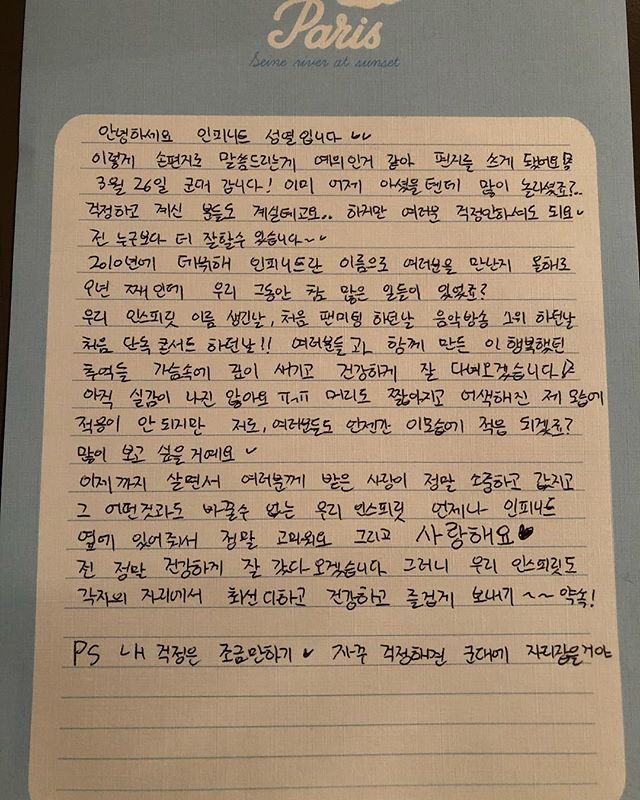 Paris
Seine river at sunset
안녕하세요 인피니트 성열입니다 ᵕᵕ
이렇게 손편지로 말씀드리는게 예의인거 같아 편지를 쓰게 됐어요
3월 26일 군대 갑니다! 이미 어제 아셨을텐데 많이 놀라셨죠?..
걱정하고 계신 분들도 계실테고요.. 하지만 여러분 걱정안하셔도 되요
전 누구보다 더 잘할수 있습니다~
2010년에 데뷔해 인피니트란 이름으로 여러분을 만난지 올해로
9년 째인데 우리 그동안 참 많은 일들이 있었죠?
우리 인스피릿 이름 생긴날, 처음 팬미팅 하던날 음악방송 1위 하던날
처음 단독 콘서트 하던날!! 여러분들과 함께 만든 이 행복했던
추억들 가슴속에 깊이 새기고 건강하게 잘 다녀오겠습니다
아직 실감이 나진 않아요 ㅠㅠ 머리도 짧아지고 어색해진 제 모습에
적응이 안 되지만 저도, 여러분들도 언젠간 이모습에 적응 되겠죠?
많이 보고 싶을거예요
이제까지 살면서 여러분께 받은 사랑이 정말 소중하고 값지고
그 어떤것과도 바꿀수 없는 우리 인스피릿 언제나 인피니트
옆에 있어줘서 정말 고마워요 그리고 사랑해요♥
전 정말 건강하게 잘 갔다오겠습니다 그러니 우리 인스피릿도
각자의 자리에서 최선 다하고 건강하고 즐겁게 보내기 ~~ 약속!
PS 내 걱정은 조금만하기 자꾸 걱정해면 군대에 자리잡을거야